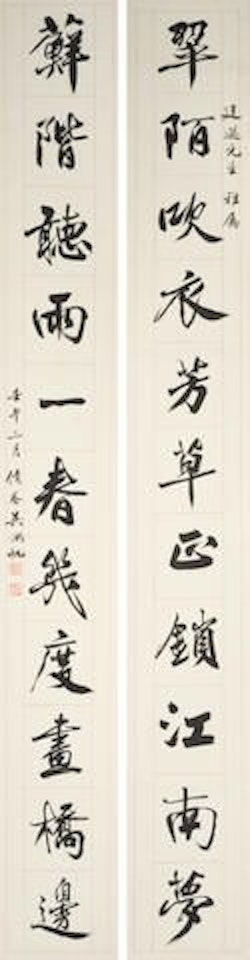 翠陌吹衣芳草正鎖江南夢
先生雅屬
蘚階聽雨一春幾度畫橋邊
壬午月倩庵吳湖帆